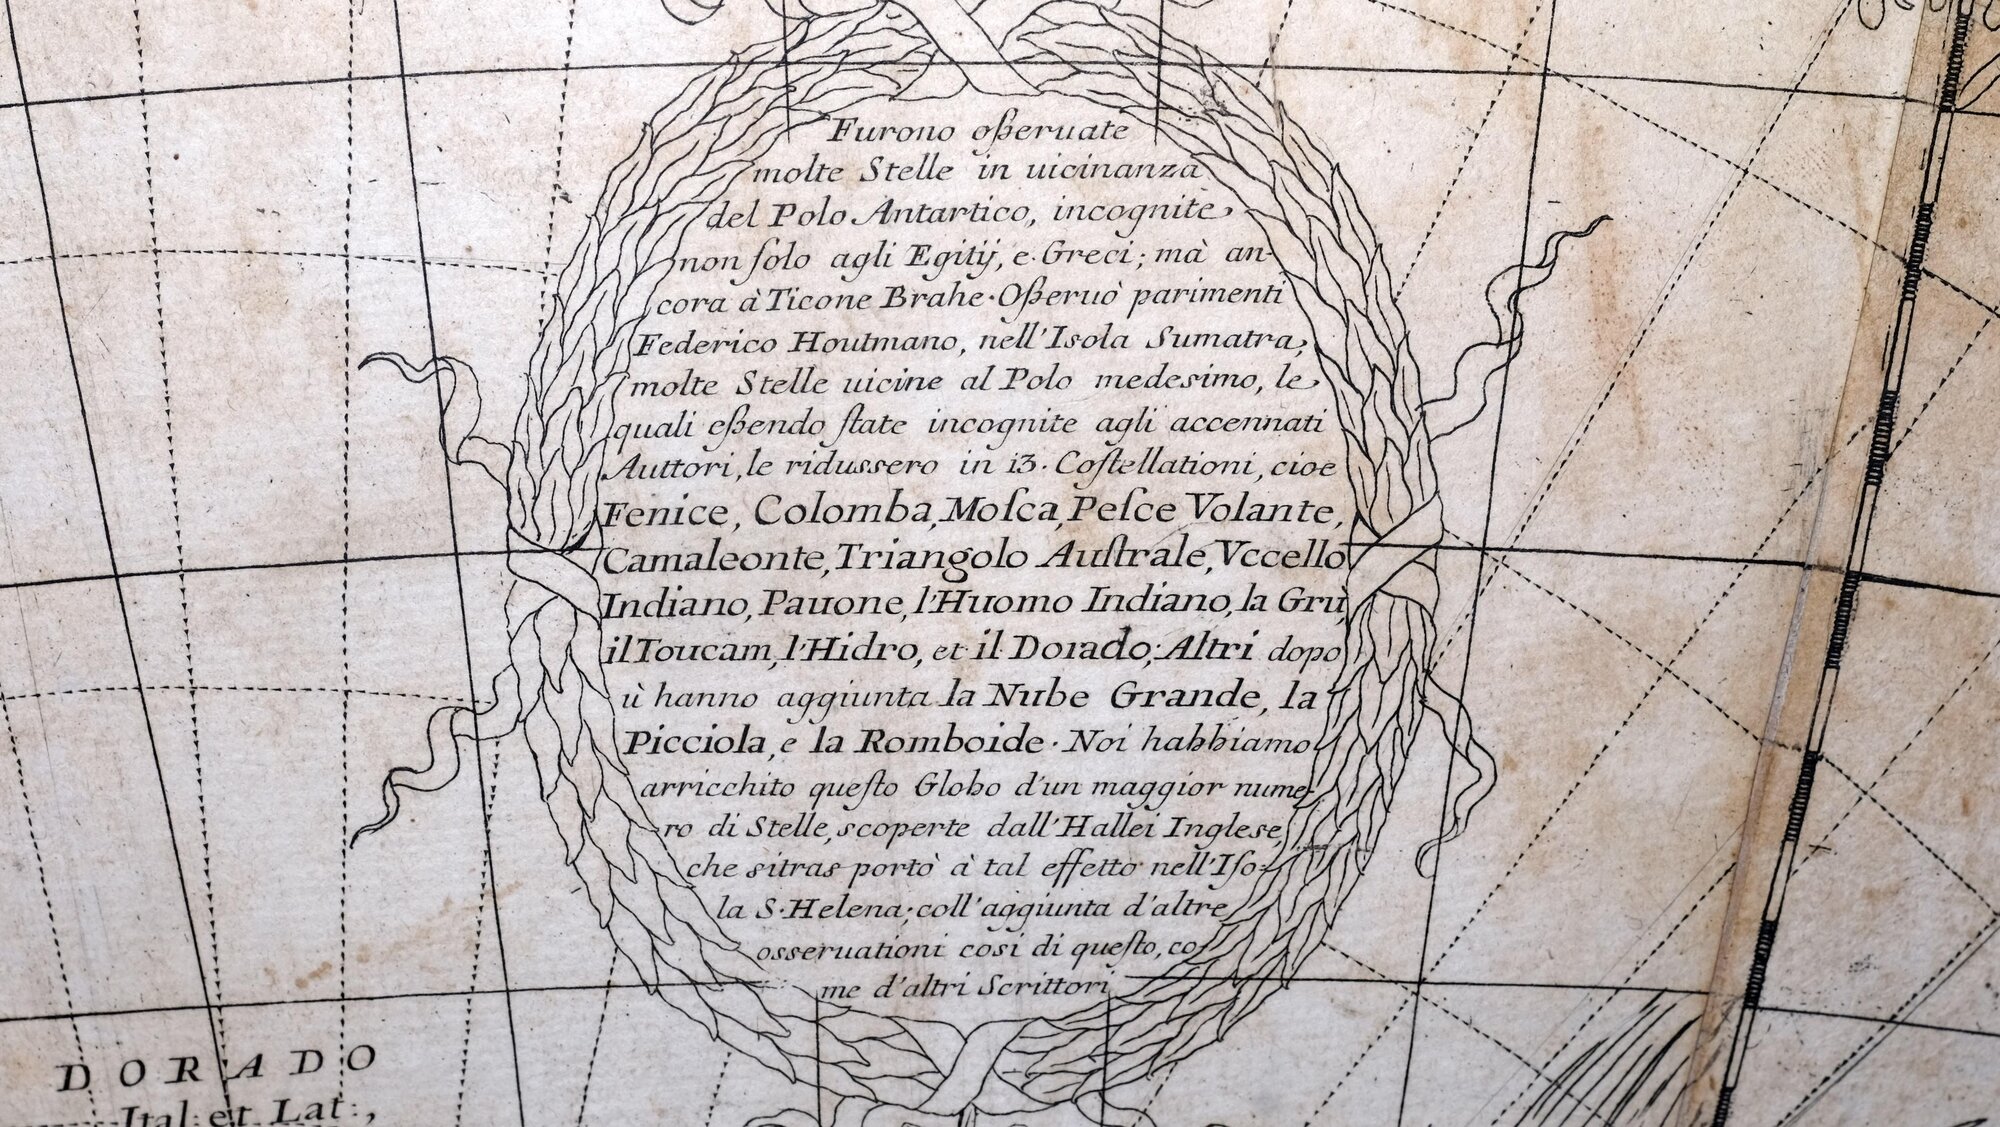 Furono oßeruate
molte Stelle in uicinanza
del Polo Antartico, incognite
non ſolo agli Egitij, e Greci; mà an-
cora à Ticone Brahe. Oßeruò parimenti
Federico Houtmano, nell'Isola Sumatra,
molte Stelle uicine al Polo medesimo, le
quali eßendo ſtate incognite agli accennati
Auttori, le ridussero in i3. Coſtellationi, cioe
Fenice, Colomba, Moſca, Peſce Volante,
Camaleonte, Triangolo Auſtrale, Vccello
Indiano, Pauone, l'Huomo Indiano, la Grù,
il Toucam, l'Hidro, et il Dorado; Altri dopo
ù hanno aggiunta la Nube Grande, la
Picciola, e la Romboide. Noi habbiamo
arricchito queſto Globo d'un maggior nume-
ro di Stelle, scoperte dall'Hallei Inglese,
che sitras portò à tal effetto nell'Iſo-
la S. Helena; coll'aggiunta d'altre
osseruationi cosi di queſto, co-
me d'altri Scrittori
DORADO
Ital: et Lat:,